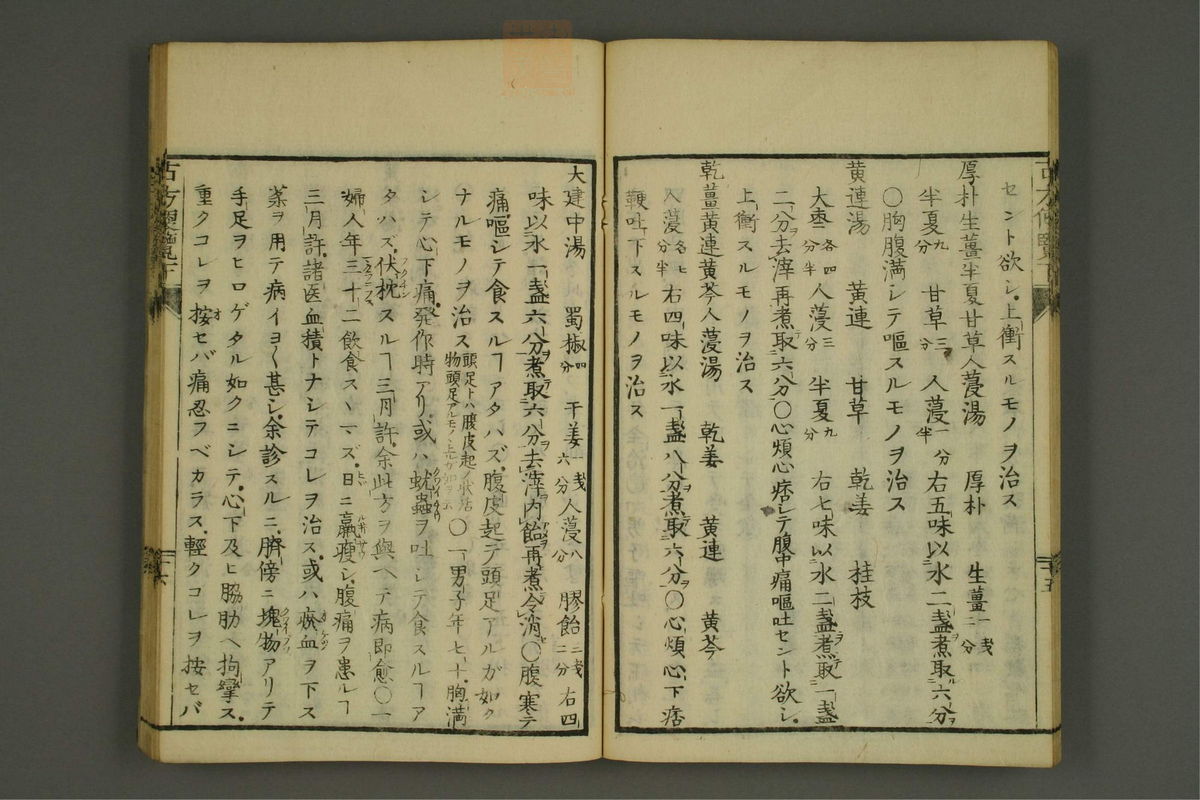 セント欲シ、上衝スルモノヲ治ス
厚朴生薑半夏甘草人薓湯　厚朴　生薑一戔二分
半夏九分　甘草三分　人薓一分半　右五味以水二盞煮取六分
〇胸腹満シテ嘔スルモノヲ治ス
黄連湯　黄連　甘草　乾姜　桂枝
大棗各四分半　人薓三分　半夏九分　右七味以水二盞煮取一盞
二分去滓再煮取六分〇心煩心痞シテ腹中痛嘔吐セント欲シ、
上衝スルモノヲ治ス
乾薑黄連黄芩人薓湯　乾姜　黄連　黄芩
人薓各七分半　右四味以水一盞八分煮取六分〇心煩心下痞
鞕吐下スルモノヲ治ス
大建中湯　蜀椒四分　干姜一戔六分　人薓八分　膠飴二戔二分　右四
味以水一盞六分煮取六分去滓内飴再煮令消〇腹寒テ
痛、嘔シテ食スルヿアタハズ、腹皮起テ頭足アルガ如ク
ナルモノヲ治ス　頭足トハ腹皮起ノ状〇一男子年七十、胸満
シテ心下痛、発作時アリ、或ハ蚘蟲ヲ吐シテ食スルヿア
タハズ、伏枕スルヿ三月許、余此方ヲ與ヘテ病即愈〇一
婦人年三十二飲食スヽマズ、日ニ羸痩シ、腹痛ヲ患ルヿ
三月許、諸医血積トナシテコレヲ治ス、或ハ瘀血ヲ下ス
薬ヲ用テ病イヨ〱甚シ、余診スルニ、臍傍ニ塊物アリテ
手足ヲヒロゲタル如クニシテ、心下及ヒ脇肋ヘ拘攣ス、
重クコレヲ按セバ痛忍フベカラス、輕クコレヲ按セバ